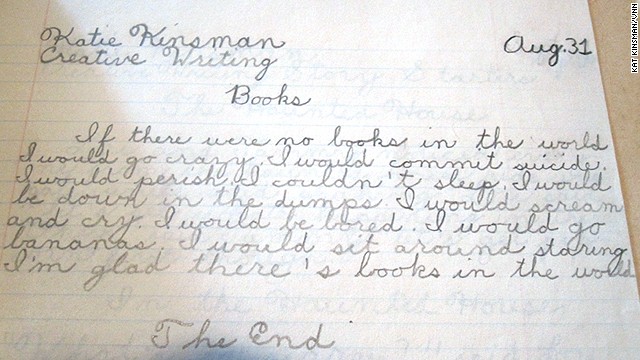 Katie Kinsman Aug. 31
Creative Writing
Books
The Haunted House
If there were no books in the world
I would go crazy. I would commit suicide.
I would perish. I couldn't sleep. I would
be down in the dumps. I would scream
and cry. I would be bored. I would go
bananas. I would sit around staring
I'm glad there's books in the world
In the Haunted House
The End
KAT KINSMAN/VNN